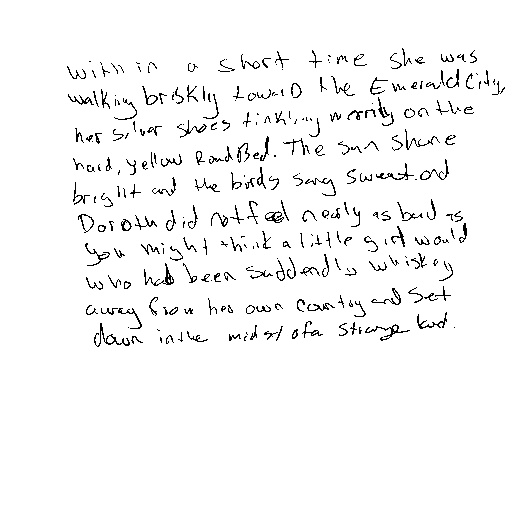 within a short time she was
walking briskly toward the Emerald City,
her silver shoes tinkling merrily on the
hard, yellow RoadBed. The sun shone
bright and the birds sang sweet and
Doroth did not feel nearly as bad as
you might think a little girl would
who had been suddendly whiskey
away from her own country and set
down in the midst of a strange land.